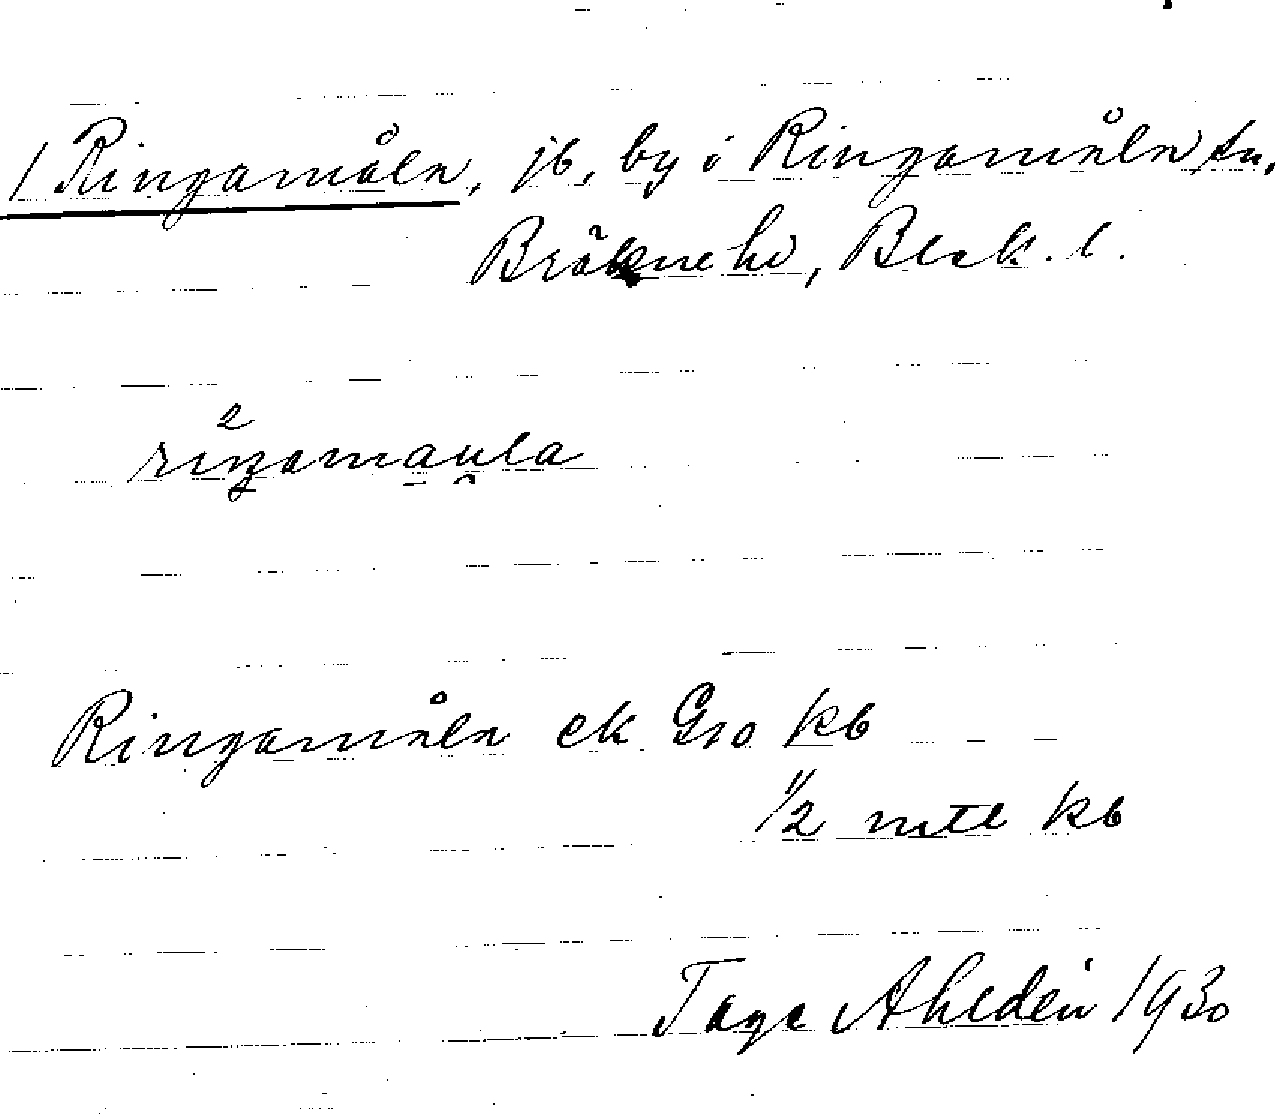 1 Ringamåln, jb, by i Ringamåln sn.
Bräkne hd, Blek. l.
2
riŋamau̯la
Ringamåln ek G10 kb
1/2 mtl kb
Tage Ahldén 1930